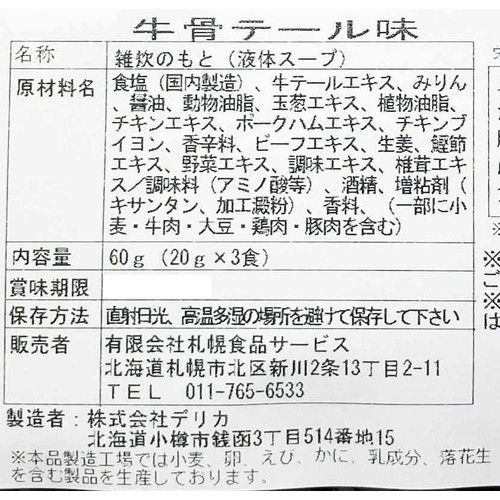 牛骨テール味
名称 雑炊のもと（液体スープ）
原材料名 食塩（国内製造）、牛テールエキス、みりん
、醤油、動物油脂、玉葱エキス、植物油脂、
チキンエキス、ポークハムエキス、チキンブ
イヨン、香辛料、ビーフエキス、生姜、鰹節
エキス、野菜エキス、調味エキス、椎茸エキ
ス／調味料（アミノ酸等）、酒精、増粘剤（
キサンタン、加工澱粉）、香料、（一部に小
麦・牛肉・大豆・鶏肉・豚肉を含む）
内容量 60ｇ（20ｇ×3食）
賞味期限
保存方法 直射日光、高温多湿の場所を避けて保存して下さい
販売者 有限会社札幌食品サービス
北海道札幌市北区新川2条13丁目2-11
ＴＥＬ 011-765-6533
製造者：株式会社デリカ
北海道小樽市銭函3丁目514番地15
※本品製造工場では小麦、卵、えび、かに、乳成分、落花生
を含む製品を生産しております。